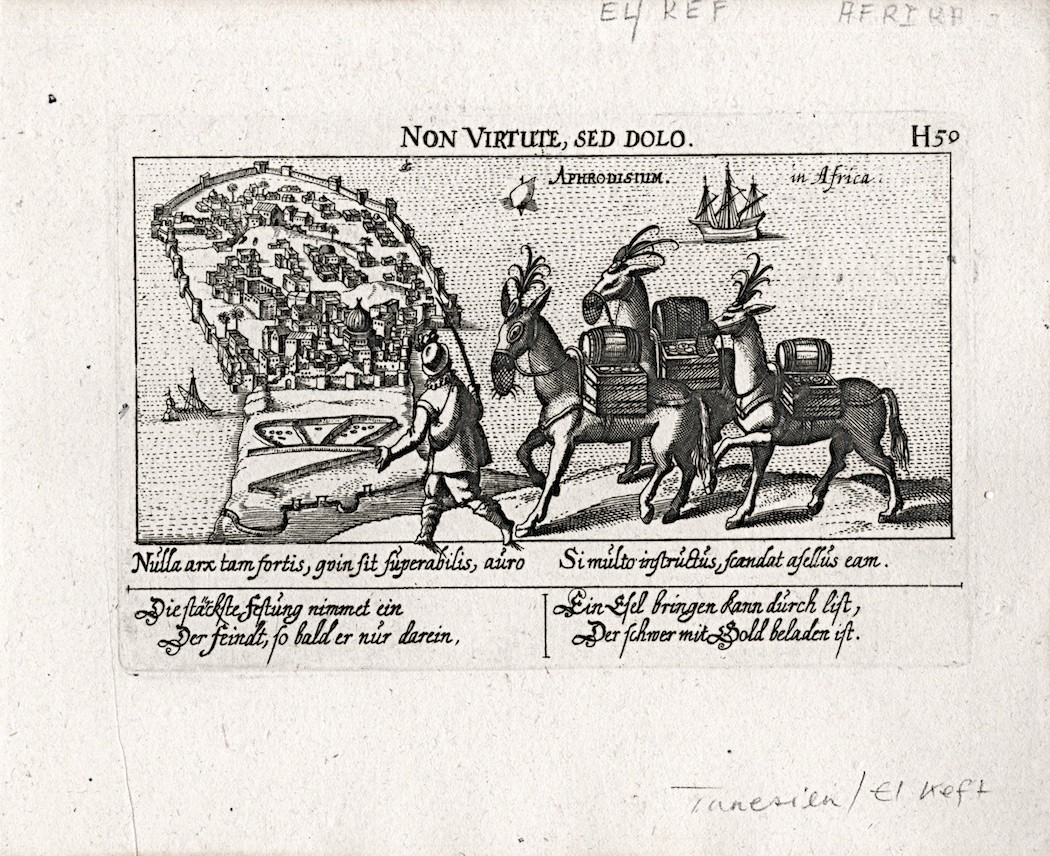 El KEF AFRIKA
NON VIRTUTE, SED DOLO. H50
APHRODISIUM. in Africa.
Nulla arx tam fortis, qvin sit superabilis, auro Si multo instructus, scandat asellus eam.
Die stärckste festung nimmet ein
Der feindt, so bald er nur darein,
Ein Esel bringen kann durch list,
Der schwer mit Gold beladen ist.
Tunesien / El Keft